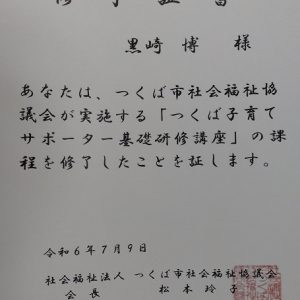 修了証書
黒崎 博 様
あなたは、つくば市社会福祉協
議会が実施する「つくば子育て
サポーター基礎研修講座」の課
程を修了したことを証します。
令和6年7月9日
社会福祉法人 つくば市社会福祉協議会
会長 松本玲子